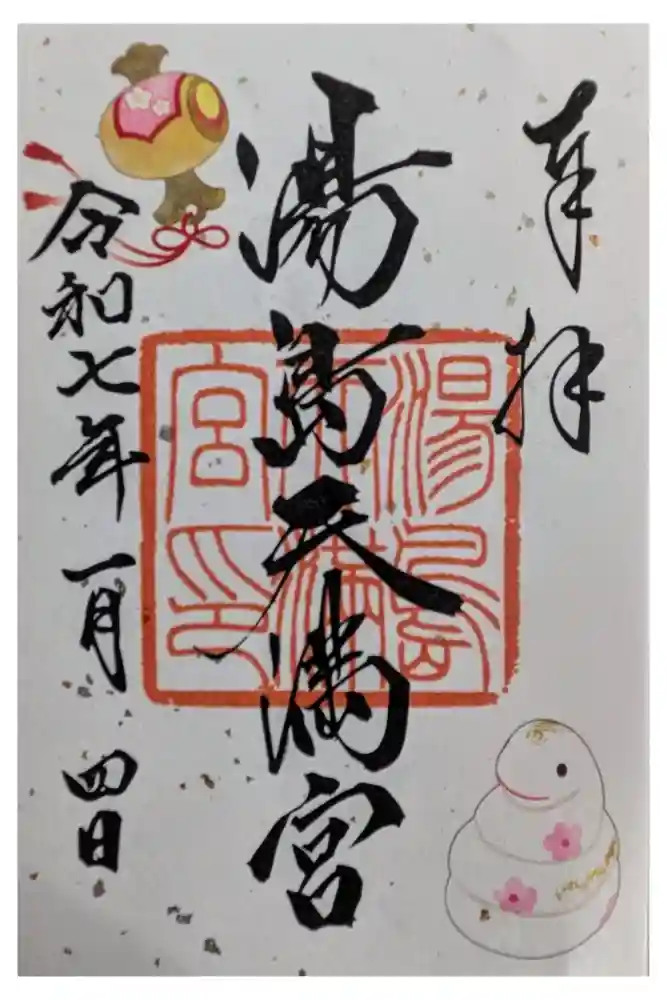 奉拝
湯島天満宮
湯島天満宮印
令和七年一月四日